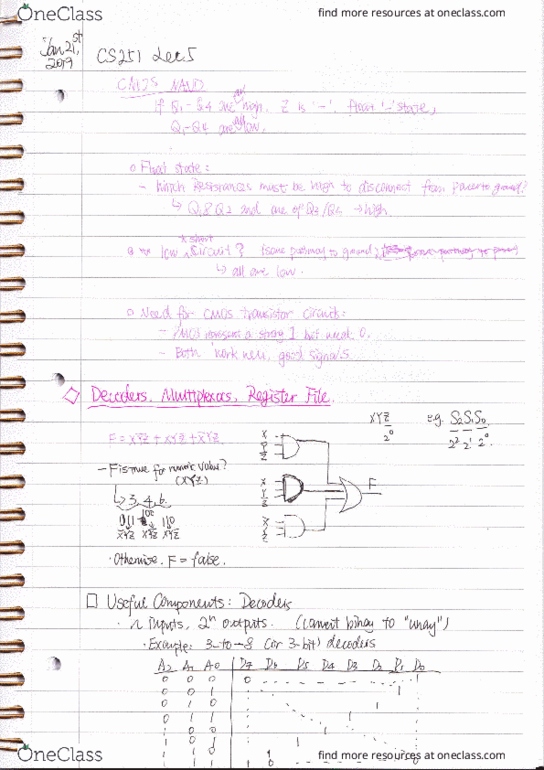 OneClass
find more resources at oneclass.com
Jan 21,st
2019
CS251 Lec 5
CMOS NAND
if Q1 - Q4 are high, Z is '-', float '-' state,
Q1-Q4 are low.
Float state:
- Which Resistances must be high to disconnect from power to ground?
↳ Q1 & Q2 and one of Q3/Q4 → high.
low, a short circuit? (some pathway to ground
↳ all are low.
Need for CMOS transistor circuits:
- PMOS transmits a strong 1 but weak 0.
- Both work well, good signals.
Decoders, Multiplexors, Register File.
XYZ
2^0
e.g. S2S1S0
2^2 2^1 2^0
F = X̄YZ + XȲZ̄ + XYZ̄
X
Y
Z
X
Y
Z
X
Y
Z
F
- F is true for numeric value?
(XYZ)
↳ 3, 4, 6.
011 100 110
X̄YZ XȲZ̄ XYZ̄
· Otherwise, F = false.
Useful Components: Decoders
· n inputs, 2^n outputs. (convert binary to "unary")
· Example: 3-to-8 (or 3-bit) decoders
A2 A1 A0 D7 D6 D5 D4 D3 D2 D1 D0
0 0 0 0 1
0 0 1 1
0 1 0 1
0 1 1 1
1 0 0
1 0 1 1
1 1 0 1
OneClass
find more resources at oneclass.com